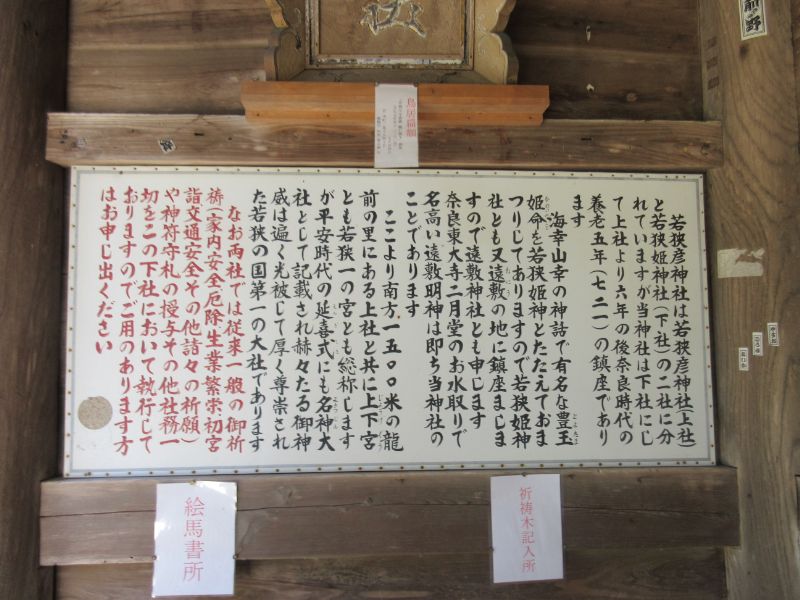 若狭彦神社は若狭彦神社(上社)
と若狭姫神社(下社)の二社に分
れていますが当神社は下社にし
て上社より六年の後奈良時代の
養老五年(七二一)の鎮座であり
ます
海幸山幸の神話で有名な豊玉
姫命を若狭姫神とたたえておま
つりしてありますので若狭姫神
社とも又遠敷の地に鎮座まします
すので遠敷神社とも申します
奈良東大寺二月堂のお水取りで
名高い遠敷明神は即ち当神社の
ことであります
ここより南方一五〇〇米の龍
前の里にある上社と共に上下宮
とも若狭一の宮とも総称します
が平安時代の延喜式にも名神大
社として記載され赫々たる御神
威は遍く光被して厚く尊崇され
た若狭の国第一の大社であります
なお両社では従来一般の御祈
祷(家内安全厄除生業繁栄初宮
詣交通安全その他諸々の祈願)
や神符守札の授与その他社務一
切をこの下社において執行して
おりますのでご用のあります方
はお申し出ください
鳥居篇額
祈祷木記入所
絵馬書所